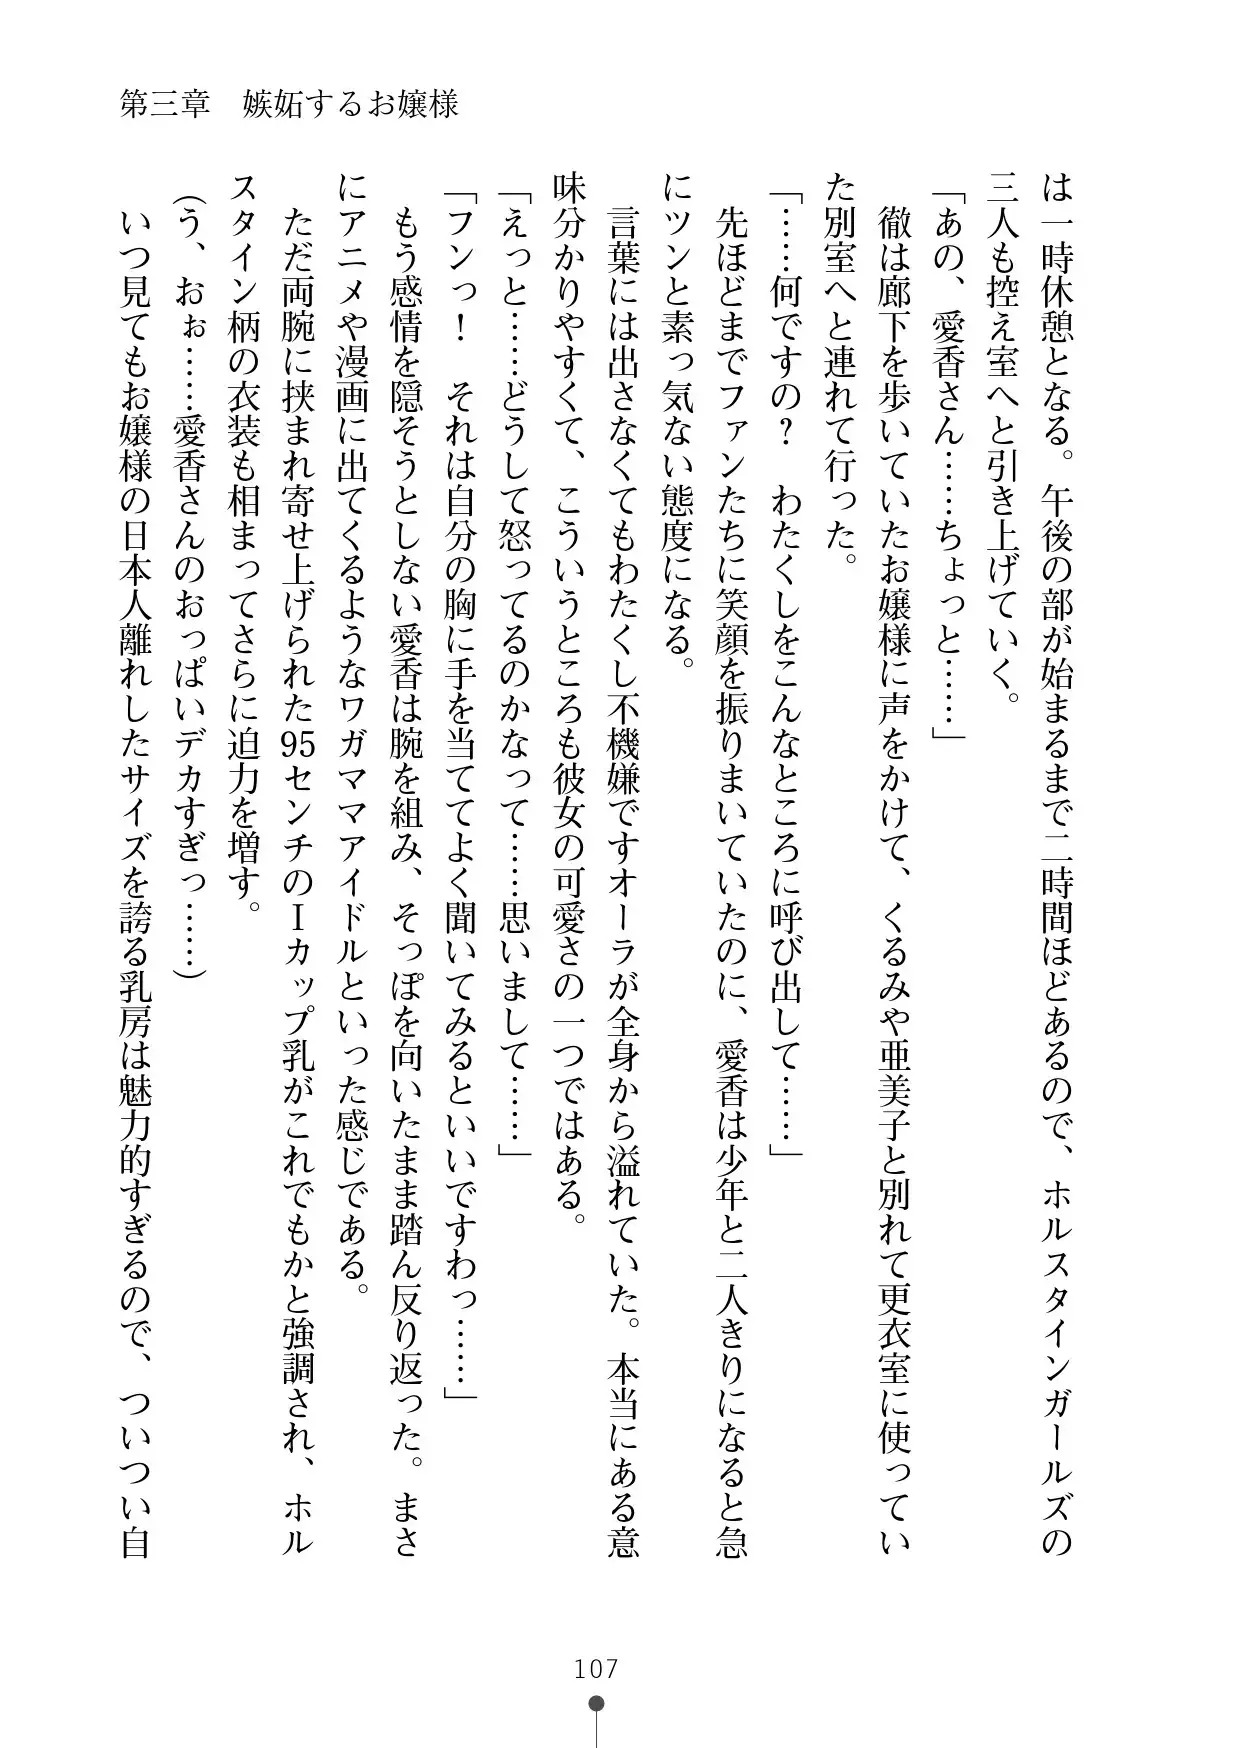 第三章　嫉妬するお嬢様
は一時休憩となる。午後の部が始まるまで二時間ほどあるので、ホルスタインガールズの
三人も控え室へと引き上げていく。
「あの、愛香さん……ちょっと……」
　徹は廊下を歩いていたお嬢様に声をかけて、くるみや亜美子と別れて更衣室に使ってい
た別室へと連れて行った。
「……何ですの？　わたくしをこんなところに呼び出して……」
　先ほどまでファンたちに笑顔を振りまいていたのに、愛香は少年と二人きりになると急
にツンと素っ気ない態度になる。
　言葉には出さなくてもわたくし不機嫌ですオーラが全身から溢れていた。本当にある意
味分かりやすくて、こういうところも彼女の可愛さの一つではある。
「えっと……どうして怒ってるのかなって……思いまして……」
「フンっ！　それは自分の胸に手を当ててよく聞いてみるといいですわっ……」
　もう感情を隠そうとしない愛香は腕を組み、そっぽを向いたまま踏ん反り返った。まさ
にアニメや漫画に出てくるようなワガママアイドルといった感じである。
　ただ両腕に挟まれ寄せ上げられた95センチのＩカップ乳がこれでもかと強調され、ホル
スタイン柄の衣装も相まってさらに迫力を増す。
（う、おぉ……愛香さんのおっぱいデカすぎっ……）
　いつ見てもお嬢様の日本人離れしたサイズを誇る乳房は魅力的すぎるので、ついつい自
107